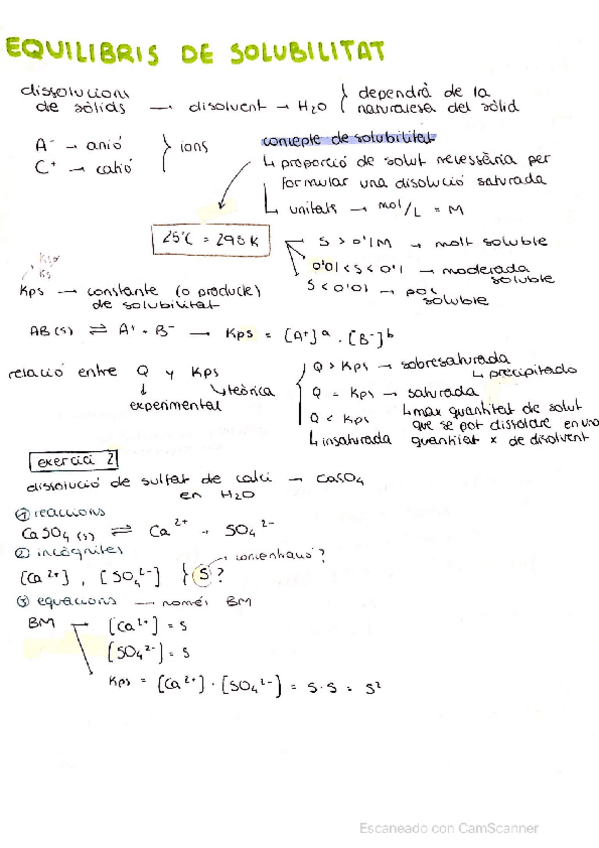 EQUILIBRIS DE SOLUBILITAT
dissolucions de sòlids → disolvent → H₂O } dependrà de la naturalesa del sòlid
A⁻ → anió
C⁺ → catió } ions
concepte de solubilitat
↳ proporció de solut necessària per
formular una disolució saturada
↳ unitats → mol/L = M
25°C = 298K
S > 0'1M → molt soluble
0'01 < S < 0'1 → moderada soluble
S < 0'01 → poc soluble
Ks
Kps → constante (o producte) de solubilitat
AB (s) ⇌ A⁺ + B⁻ → Kps = [A⁺]ᵃ · [B⁻]ᵇ
relació entre Q y Kps
experimental
↳ teòrica
Q > Kps → sobresaturada
↳ precipitado
Q = Kps → saturada
↳ max quantitat de solut
que se pot dissoldre en una
quantitat x de disolvent
Q < Kps
↳ insaturada
exercici 2
dissolució de sulfat de calci → CaSO₄
en H₂O
① reaccions
CaSO₄ (s) ⇌ Ca²⁺ + SO₄²⁻
② incògnites
[Ca²⁺], [SO₄²⁻] } S?
③ equacions → només BM
BM → [Ca²⁺] = S
[SO₄²⁻] = S
Kps = [Ca²⁺] · [SO₄²⁻] = S·S = S²
Escaneado con CamScanner